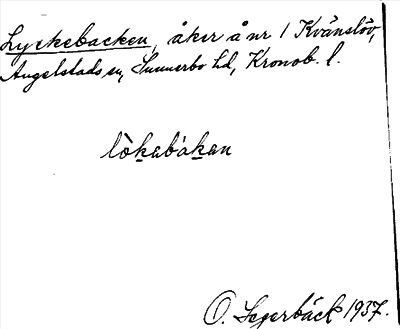 Lyckebacken, åker å nr 1 Kvänslöv,
Angelstads sn, Sunnerbo hd, Kronob. l.
lòkabàkan
O. Segerbäck 1937.